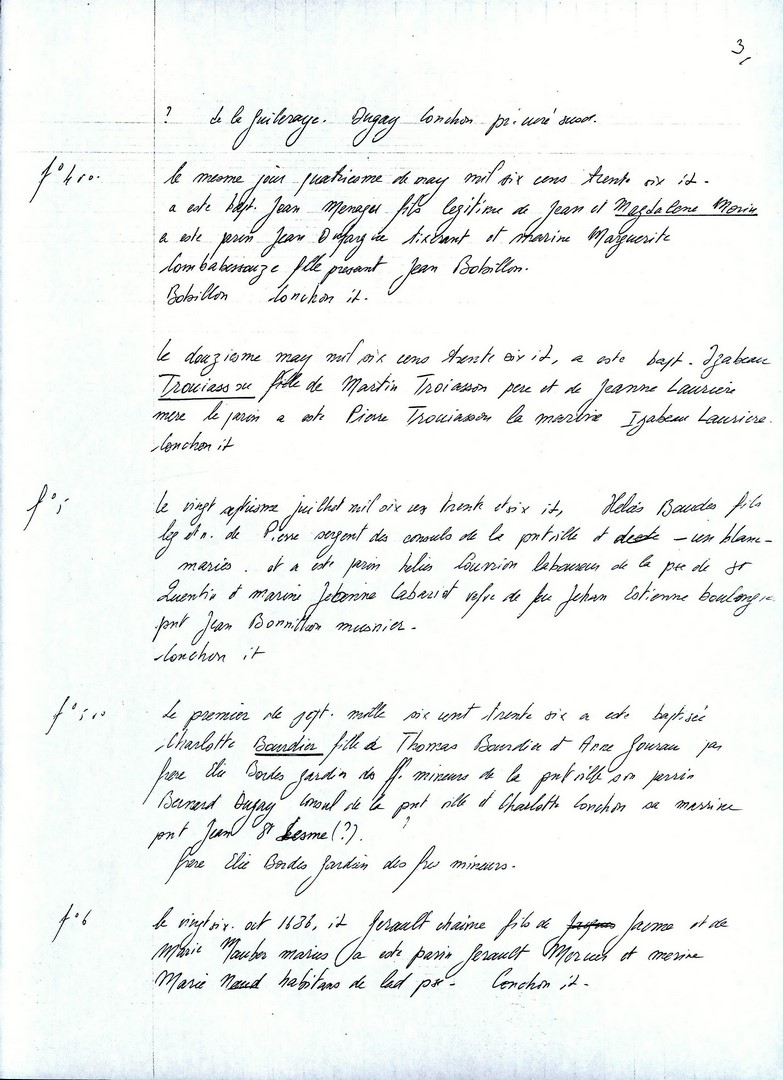 3
? de la Guileraye. Dugay Conchon pr. curé susd.
f° 4 vo.
le mesme jour quatriesme de may mil six cens trente six it.
a este bapt. Jean Menager fils legitime de Jean et Magdalene Morin
a este parin Jean Dufargue tixerant et marine Marguerite
Combabessouze fille presant Jean Bobillon.
Bobillon Conchon it.
le douziesme may mil six cens trente six it, a este bapt. Izabeau
fille de Martin Troiasson pere et de Jeanne Lauriere
mere le parin a este Pierre Trouiasson la marrine Izabeau Lauriere.
Conchon it
f° 5
le vingt septiesme juilhet mil six cen trente et six it, Helias Bourdes fils
leg et n. de Pierre sergent des consuls de la pnt ville et
maries. et a este parin helies laboureur de la psse de St
Quentin et marine Jehanne Labariet vefve de feu Jehan Estienne boulongie
pnt Jean Bonnithon musnier.
Conchon it
f° 5 vo
Le premier de sept. mille six cent trente six a este baptisée
Charlotte Bourdier fille de Thomas Bourdier et Anne Gourau par
frere Elie Bordes gardien des ff. mineurs de la pnt ville son parrin
Bernard Dugay consul de la pnt ville et Charlotte Conchon sa marrine
pnt Jean St Lesme (?). ?
frere Elie Bordes gardien des fre mineurs.
f° 6
le vingt six. oct 1636, it Gerault chaime fils de Jacques Jacme et de
Marie maries a este parin Gerault Mercier et merine
Marie Naud habitans de lad psse. Conchon it.